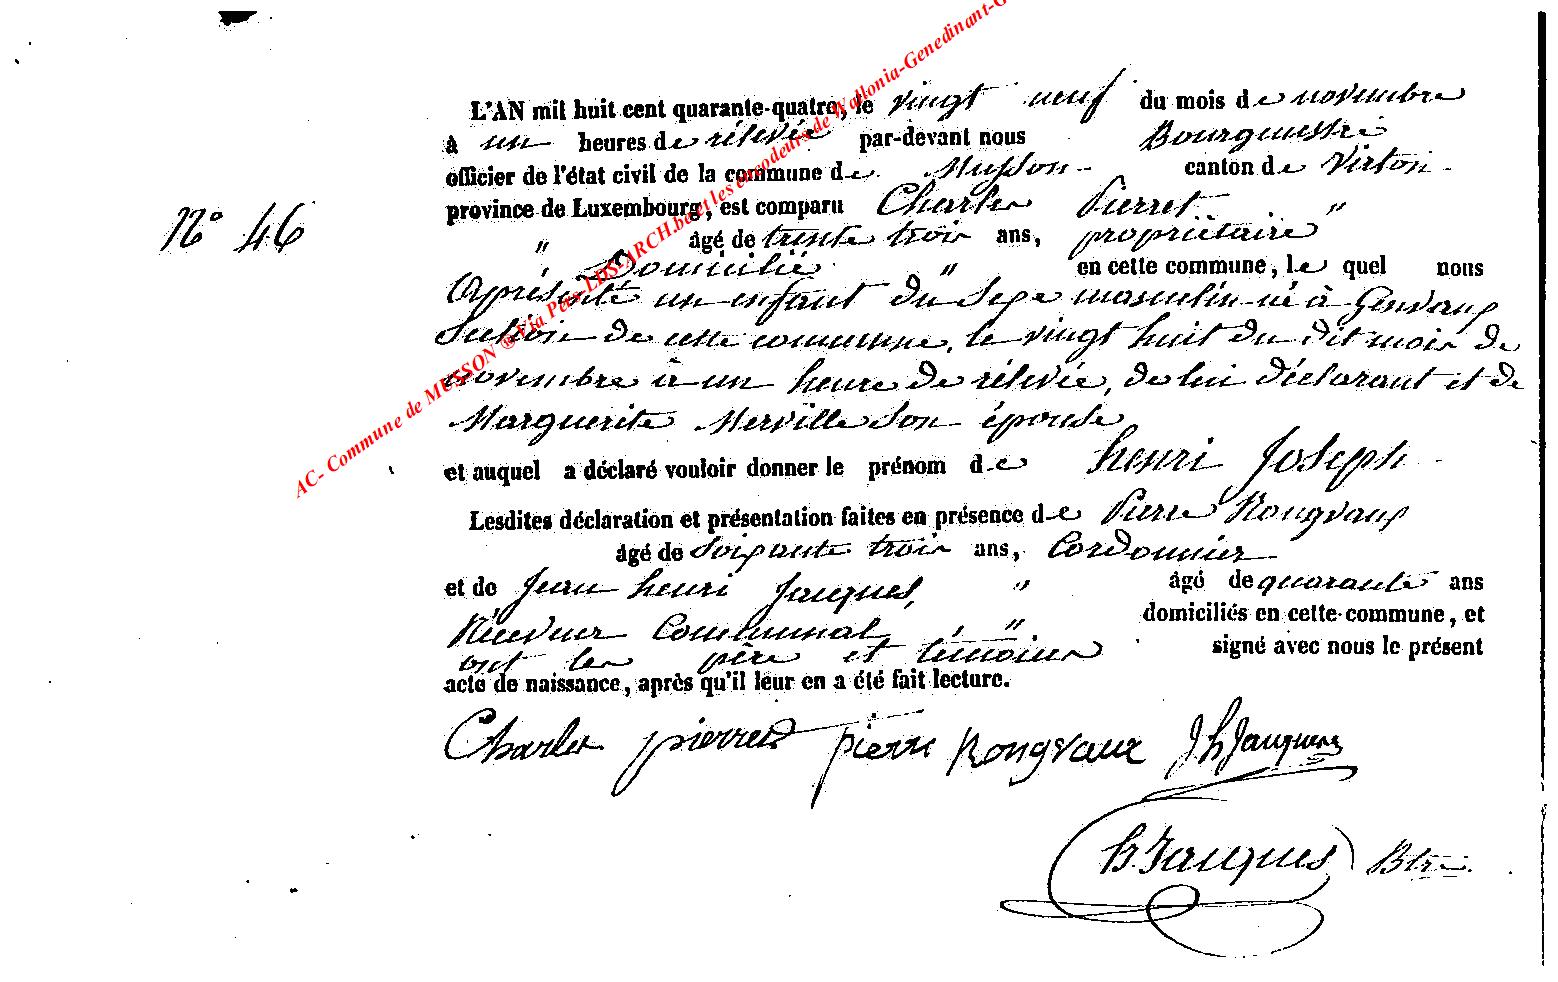 L'AN mil huit cent quarante-quatre, le vingt neuf du mois de novembre
à un heures de rélevée par-devant nous Bourgmestre
officier de l'état civil de la commune de Musson canton de Virton
province de Luxembourg, est comparu Charles Pierret "
N° 46
" âgé de trente trois ans, propriétaire "
Domicilié " en cette commune, le quel nous
a présenté un enfant du sexe masculin né à Genvaux
Section de cette commune, le vingt huit du dit mois de
novembre à un heure de rélevée, de lui déclarant et de
Marguerite Merville son épouse
et auquel a déclaré vouloir donner le prénom de henri Joseph
Lesdites déclaration et présentation faites en présence de Pierre Rongvaux
âgé de soixante trois ans, Cordonnier
et de Jean henri Jacques, " âgé de quarante ans
Réceveur Communal " domiciliés en cette commune, et
ont les père et témoins signé avec nous le présent
acte de naissance, après qu'il leur en a été fait lecture.
Charles pierret pierre Rongvaux J.h Jacques
h. Jacques Btre
AC- Commune de MUSSON ® Via Pers-LDS-ARCH.be et les encodeurs de Wallonia-Genedinant-G